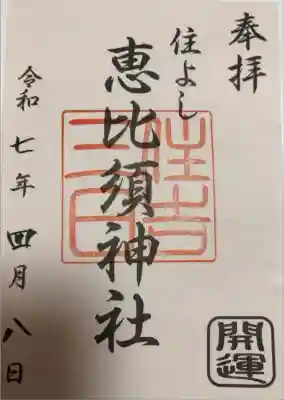 奉拝
住よし
恵比須神社
令和七年四月八日
開運